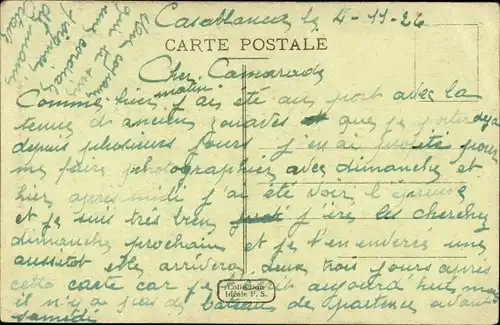 Casablanca le 4-11-26
CARTE POSTALE
Cher Camarade
Comme hier matin j'ai été au port avec la
tenue d'ancien zouaves et que je porterai
depuis plusieurs jours j'en ai profité pour
me faire photographier avec dimanche et
hier après midi j'ai été voir l'épreuve
et je suis très bien j'irai les chercher
dimanche prochain et je t'en enverée une
aussitot elle arrivera deux trois jours après
cette carte car je aujourd'hui mais
il n'y a pas de bateau de partence avant
samedi
Collection
Idéale P. S.